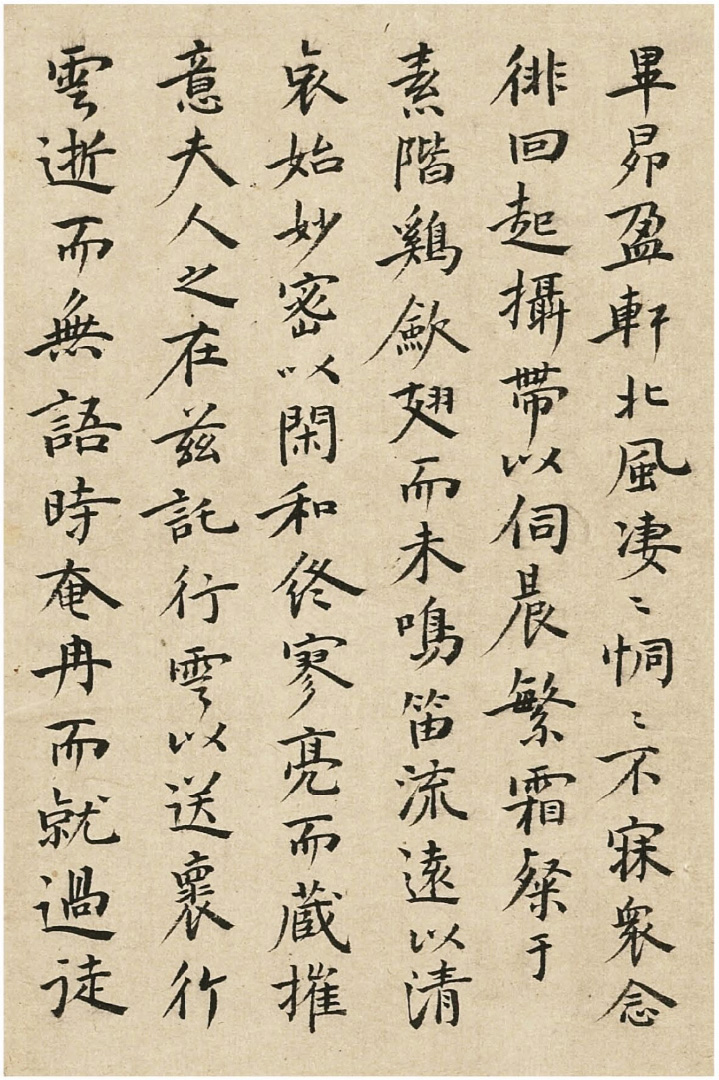 畢昴盈軒北風凄〻恫〻不寐衆念
徘回起攝帶以伺晨繁霜粲于
素階鷄歛翅而未鳴笛流遠以清
哀始妙密以閑和終寥亮而蔵摧
意夫人之在兹託行雲以送褱行
雲逝而無語時奄冉而就過徒